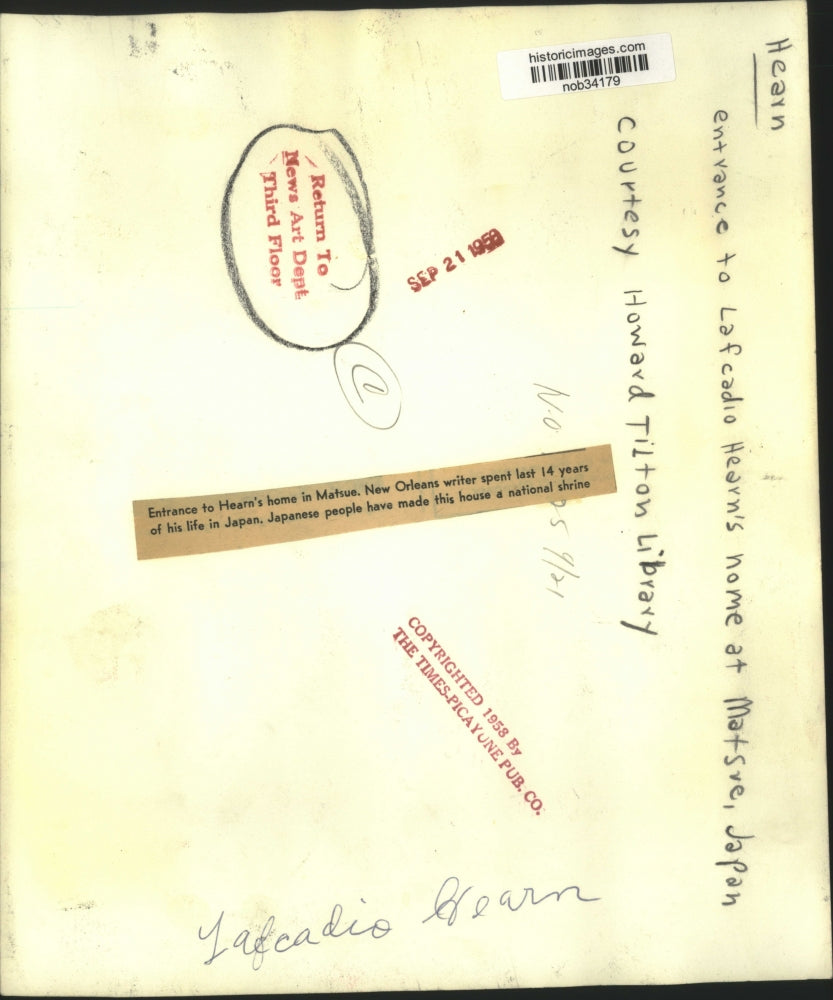 Hearn
entrance to Lafcadio Hearn's home at Matsue, Japan
courtesy Howard Tilton Library
historicimages.com
nob34179
Return To
News Art Dept
Third Floor
SEP 21 1958
N.O.
9/21
Entrance to Hearn's home in Matsue. New Orleans writer spent last 14 years
of his life in Japan. Japanese people have made this house a national shrine
COPYRIGHTED 1958 By
THE TIMES-PICAYUNE PUB. CO.
Lafcadio Hearn